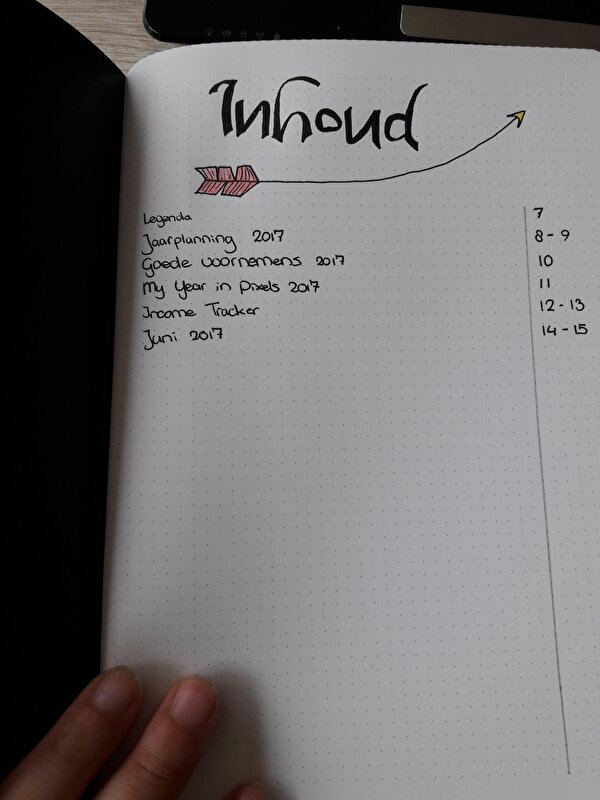 Inhoud
Legenda 7
Jaarplanning 2017 8-9
Goede voornemens 2017 10
My Year in Pixels 2017 11
Income Tracker 12-13
Juni 2017 14-15